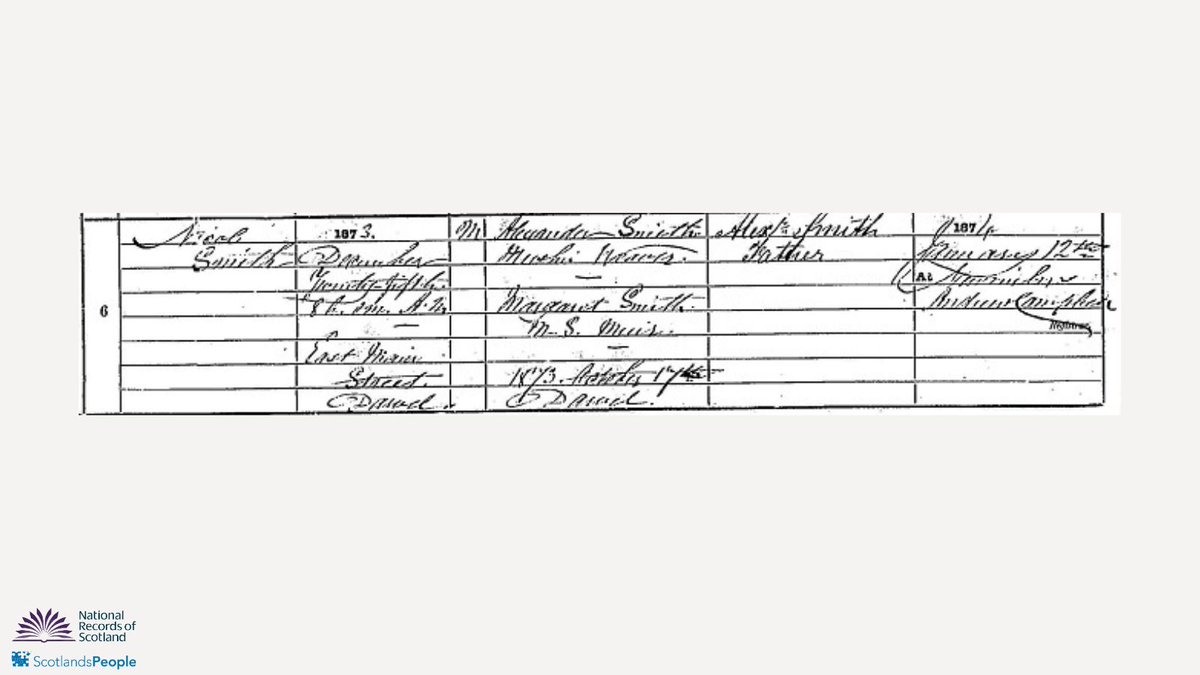 6
Nicol
Smith
1873.
December
Twenty fifth
8h. 0m. A.M.
East Main
Street
Darvel.
M
Alexander Smith
Muslin Weaver.
Margaret Smith
M. S. Muir.
1873. October 17th
Darvel.
Alexr Smith
Father
1874
January 12th
At
Andrew Campbell
Registrar.
National
Records of
Scotland
ScotlandsPeople